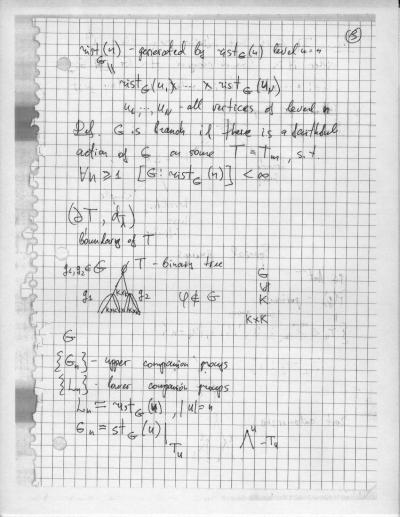 ⑬
rist_G(n) - generated by rist_G(u) level u = n
||
rist_G(u_1) × ... × rist_G(u_N)
u_1, ..., u_N - all vertices of level n
Def. G is branch if there is a faithful
action of G on some T = T_m, s.t
∀n ⩾ 1 [G : rist_G(n)] < ∞
(∂T, d_λ)
boundary of T
g_1, g_2 ∈ G T - binary tree
g_1 K×K g_2 φ ∉ G
G
∨|
K
K×K
G
{G_n} - upper companion groups
{L_n} - lower companion groups
L_n = rist_G(u), |u| = n
G_n = st_G(u)|_{T_u}
u
- T_u